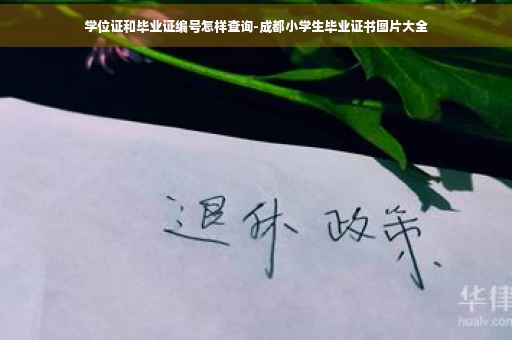 学位证和毕业证编号怎样查询-成都小学生毕业证书图片大全
退休 政策
华律
hualv.com